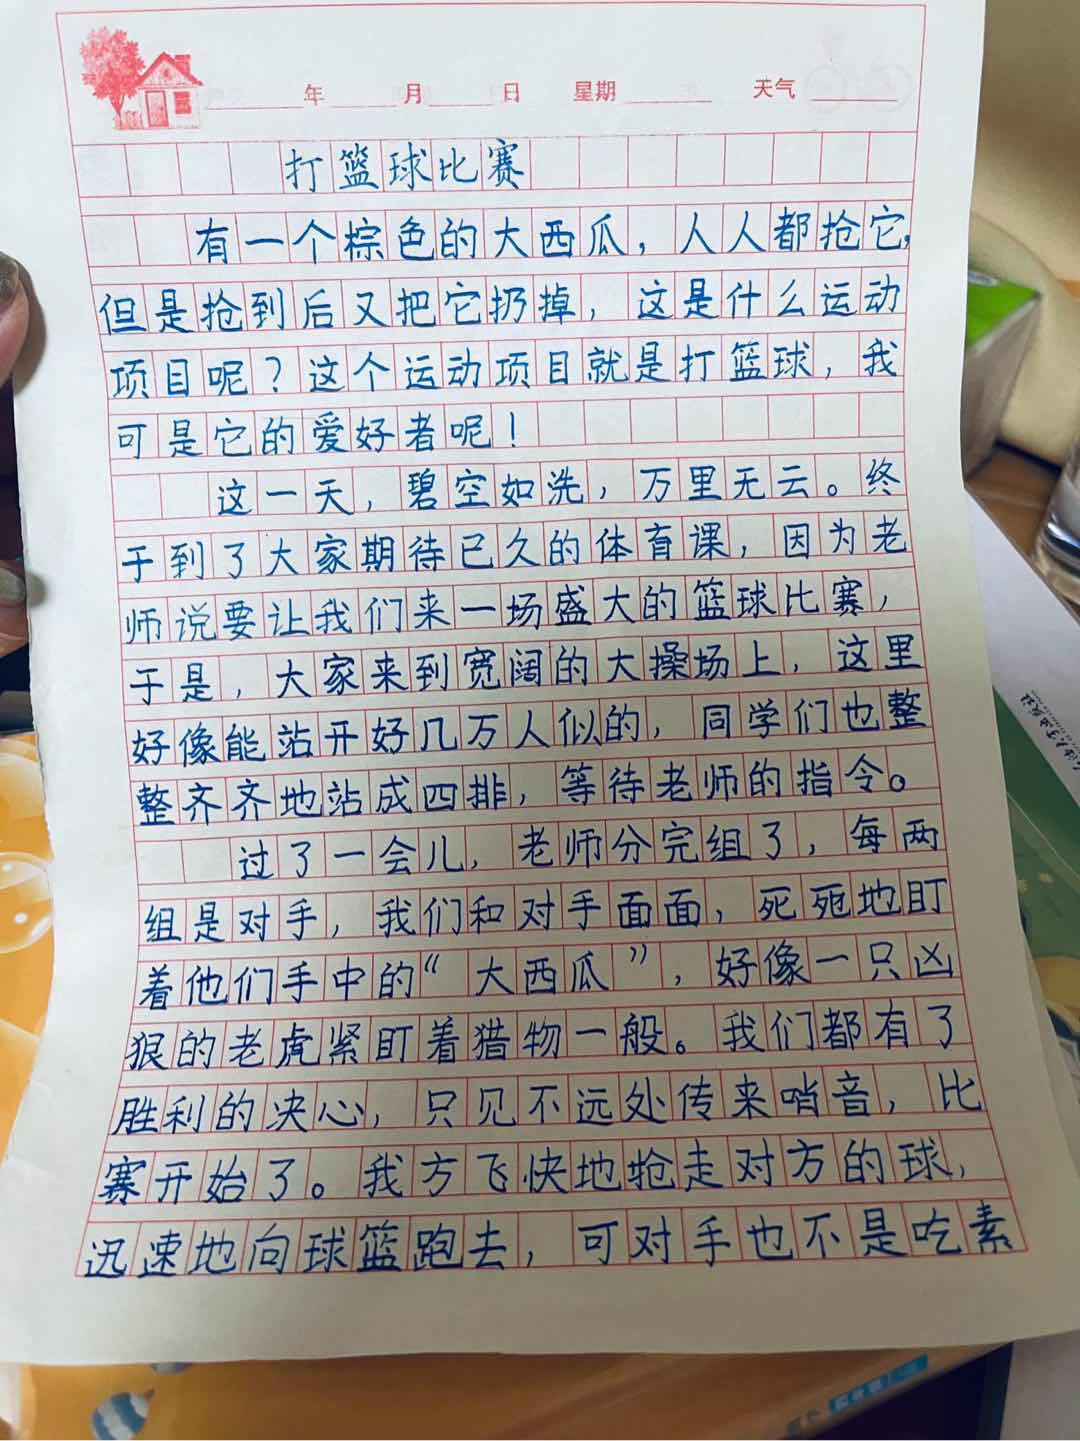 年 月 日 星期 天气
打篮球比赛
有一个棕色的大西瓜，人人都抢它，
但是抢到后又把它扔掉，这是什么运动
项目呢？这个运动项目就是打篮球，我
可是它的爱好者呢！
这一天，碧空如洗，万里无云。终
于到了大家期待已久的体育课，因为老
师说要让我们来一场盛大的篮球比赛，
于是，大家来到宽阔的大操场上，这里
好像能站开好几万人似的，同学们也整
整齐齐地站成四排，等待老师的指令。
过了一会儿，老师分完组了，每两
组是对手，我们和对手面面，死死地盯
着他们手中的“大西瓜”，好像一只凶
狠的老虎紧盯着猎物一般。我们都有了
胜利的决心，只见不远处传来哨音，比
赛开始了。我方飞快地抢走对方的球，
迅速地向球篮跑去，可对手也不是吃素